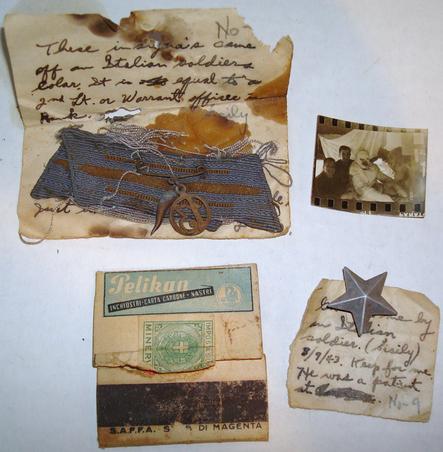 No
These insignia's came
off an Italian soldiers
Colar. It is equal to a
2nd Lt. or Warrant officer
Rank.
Sicily
Just
Pelikan
INCHIOSTRI-CARTA CARBONE-NASTRI
MINERV
S.A.F.F.A. S DI MAGENTA
by
an Italian
soldier. (Sicily)
8/9/43. Keep for me
He was a patient
Nov 9